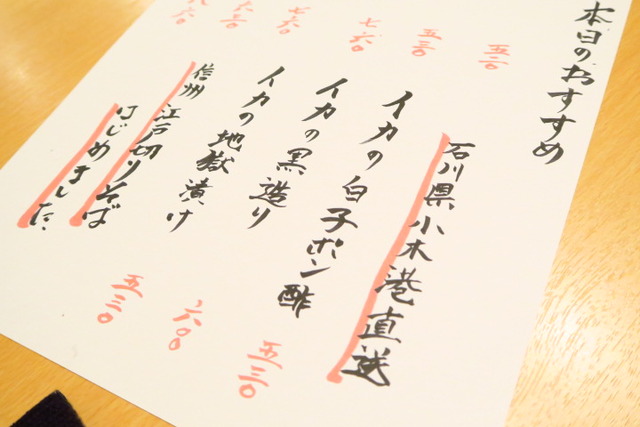 本日のおすすめ
五二〇
五三〇
七六〇
七六〇
六六〇
石川県小木港直送
イカの白子ポン酢
五三〇
イカの黒造り
六〇〇
イカの地獄漬け
五三〇
信州 江戸切りそば
はじめました